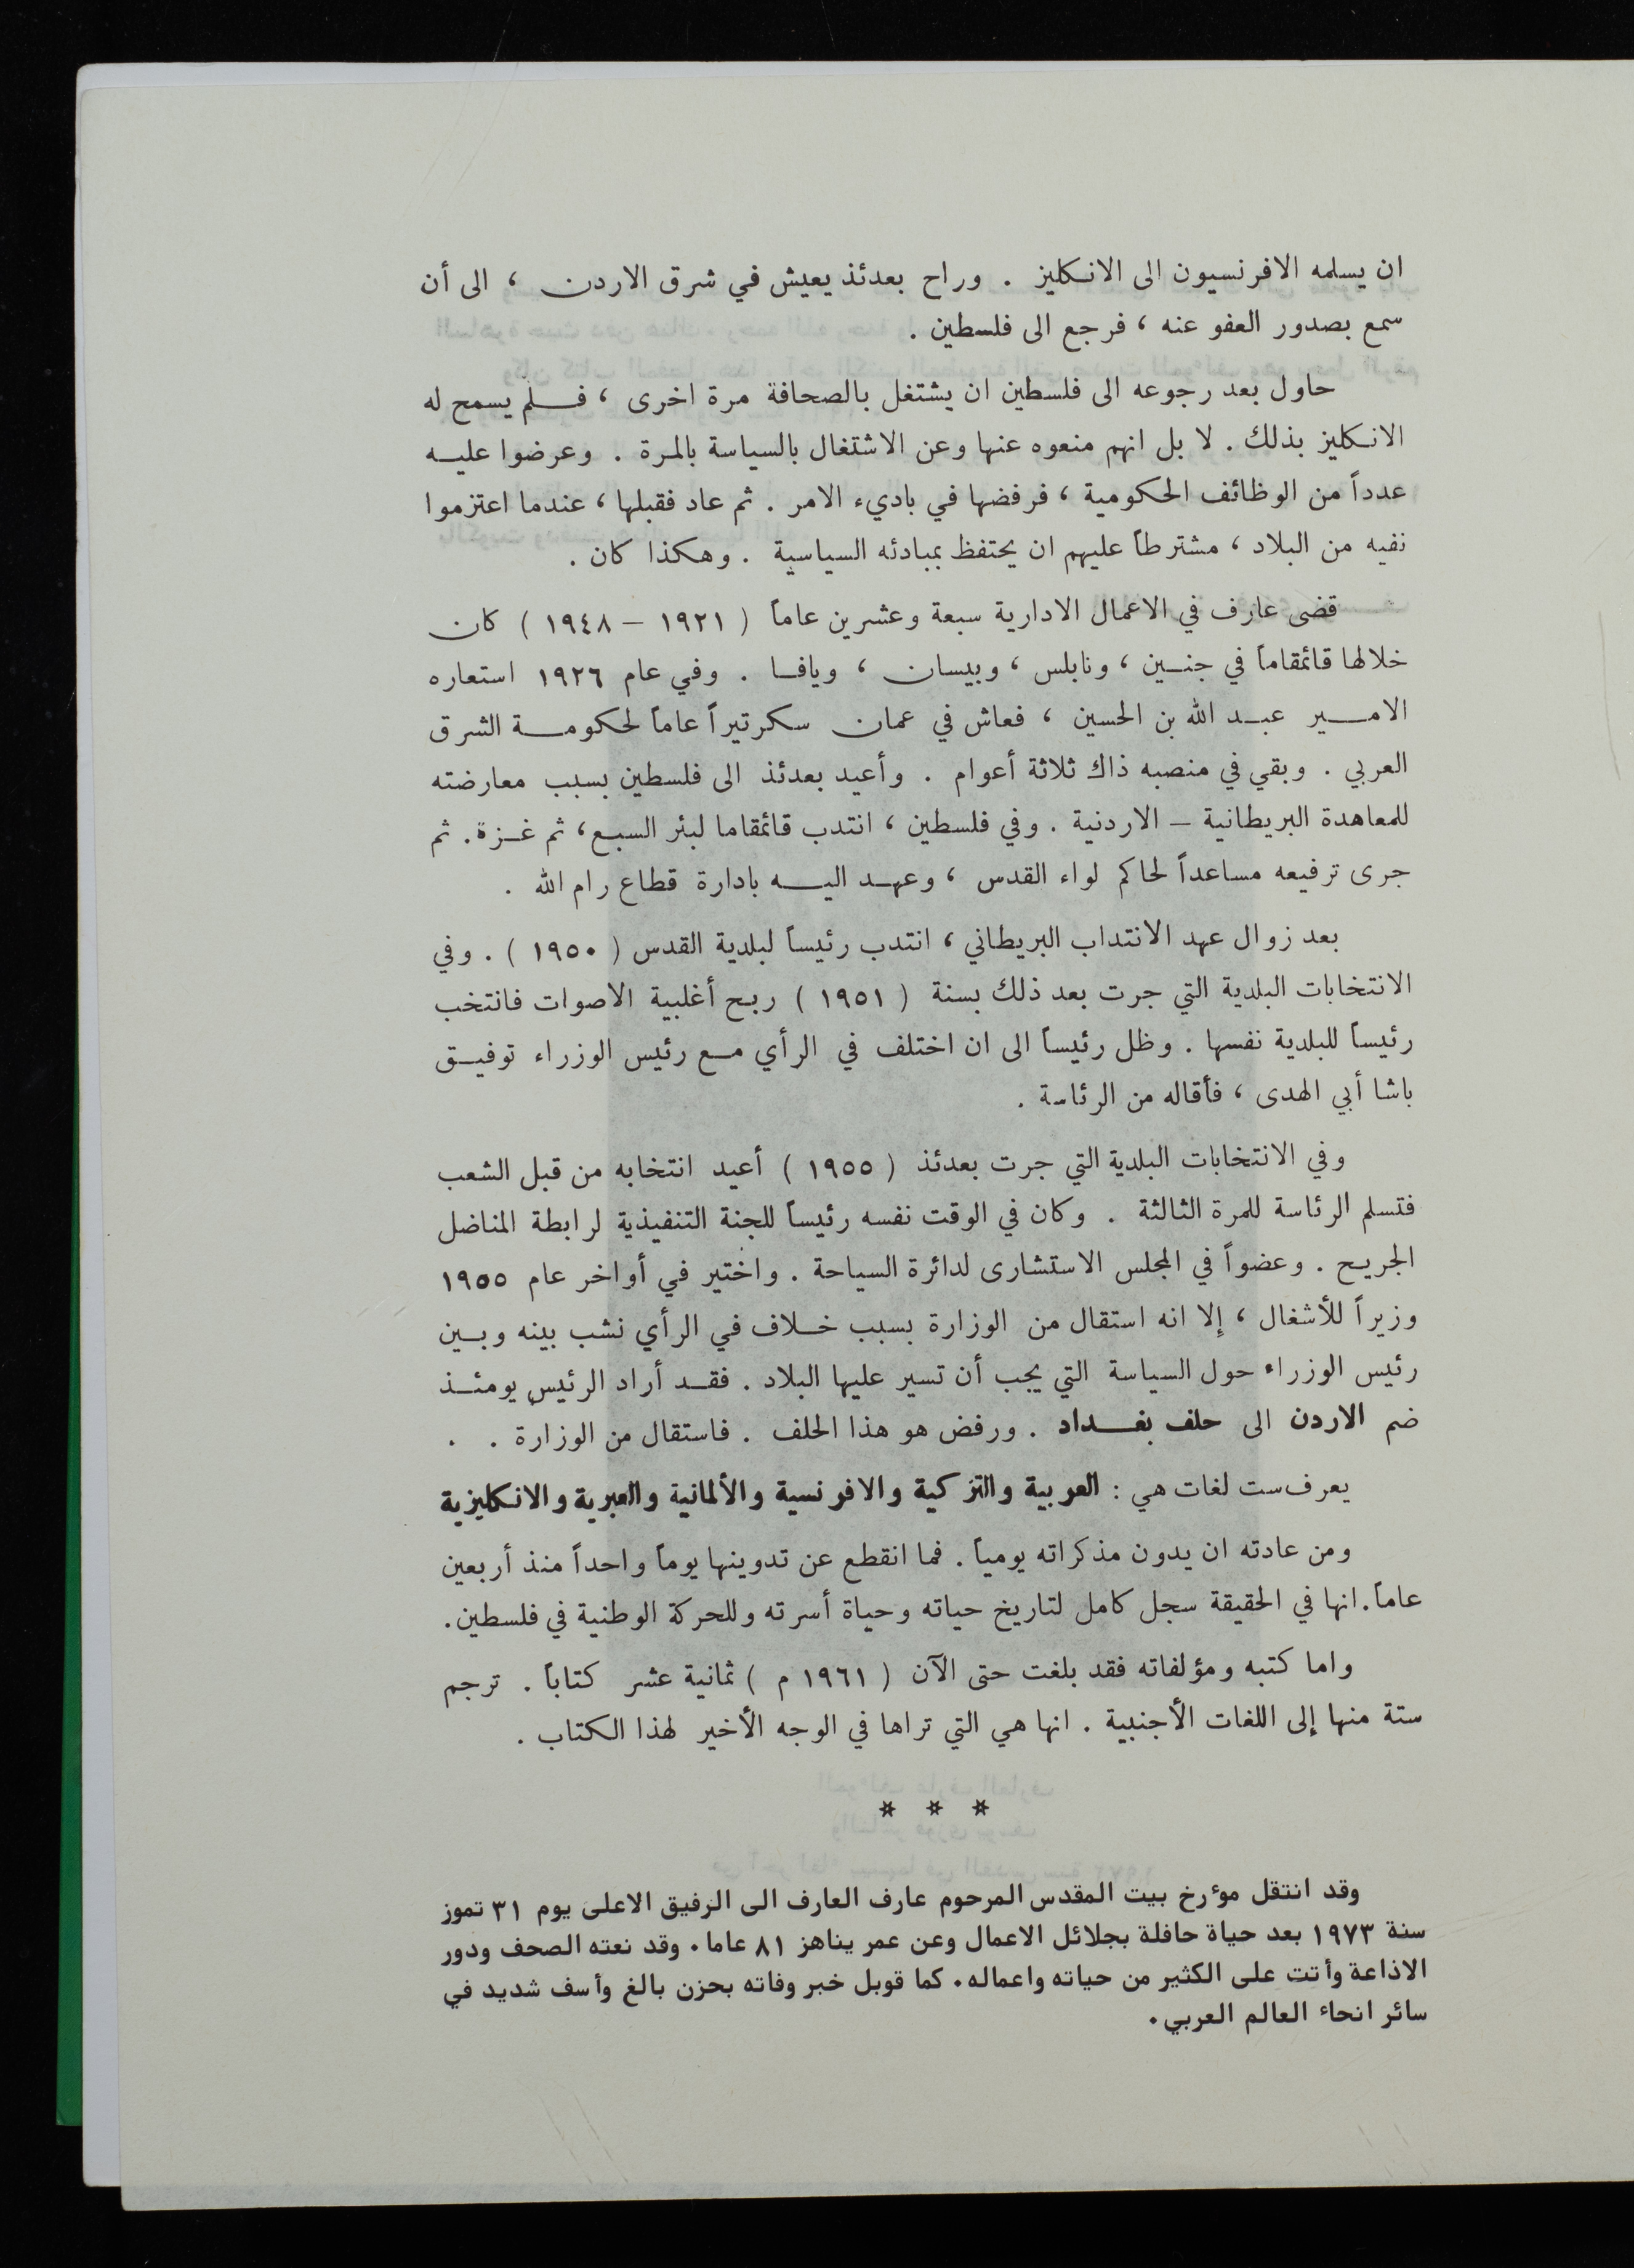 ان يسلمه الافرنسيون الى الانكليز . وراح بعدئذ يعيش في شرق الاردن ، الى أن
سمع بصدور العفو عنه ، فرجع الى فلسطين .
حاول بعد رجوعه الى فلسطين ان يشتغل بالصحافة مرة اخرى ، فلم يسمح له
الانكليز بذلك . لا بل انهم منعوه عنها وعن الاشتغال بالسياسة بالمرة . وعرضوا عليه
عدداً من الوظائف الحكومية ، فرفضها في باديء الامر . ثم عاد فقبلها ، عندما اعتزموا
نفيه من البلاد ، مشترطاً عليهم ان يحتفظ بمبادئه السياسية . وهكذا كان .
قضى عارف في الاعمال الادارية سبعة وعشرين عاماً ( ١٩٢١ – ١٩٤٨ ) كان
خلالها قائمقاماً في جنين ، ونابلس ، وبيسان ، ويافا . وفي عام ١٩٢٦ استعاره
الامير عبد الله بن الحسين ، فعاش في عمان سكرتيراً عاماً لحكومة الشرق
العربي . وبقي في منصبه ذاك ثلاثة أعوام . وأعيد بعدئذ الى فلسطين بسبب معارضته
للمعاهدة البريطانية – الاردنية . وفي فلسطين ، انتدب قائمقاما لبئر السبع ، ثم غزة . ثم
جرى ترفيعه مساعداً لحاكم لواء القدس ، وعهد اليه بادارة قطاع رام الله .
بعد زوال عهد الانتداب البريطاني ، انتدب رئيساً لبلدية القدس ( ١٩٥٠ ) . وفي
الانتخابات البلدية التي جرت بعد ذلك بسنة ( ١٩٥١ ) ربح أغلبية الاصوات فانتخب
رئيساً للبلدية نفسها . وظل رئيساً الى ان اختلف في الرأي مع رئيس الوزراء توفيق
باشا أبي الهدى ، فأقاله من الرئاسة .
وفي الانتخابات البلدية التي جرت بعدئذ ( ١٩٥٥ ) أعيد انتخابه من قبل الشعب
فتسلم الرئاسة للمرة الثالثة . وكان في الوقت نفسه رئيساً للجنة التنفيذية لرابطة المناضل
الجريح . وعضواً في المجلس الاستشارى لدائرة السياحة . واختير في أواخر عام ١٩٥٥
وزيراً للأشغال ، إلا انه استقال من الوزارة بسبب خلاف في الرأي نشب بينه وبين
رئيس الوزراء حول السياسة التي يجب أن تسير عليها البلاد . فقد أراد الرئيس يومئذ
ضم الاردن الى حلف بغداد . ورفض هو هذا الحلف . فاستقال من الوزارة . .
يعرف ست لغات هي : العربية والتركية والافرنسية والألمانية والعبرية والانكليزية
ومن عادته ان يدون مذكراته يومياً . فما انقطع عن تدوينها يوماً واحداً منذ أربعين
عاماً . انها في الحقيقة سجل كامل لتاريخ حياته وحياة أسرته وللحركة الوطنية في فلسطين .
واما كتبه ومؤلفاته فقد بلغت حتى الآن ( ١٩٦١ م ) ثمانية عشر كتاباً . ترجم
ستة منها إلى اللغات الأجنبية . انها هي التي تراها في الوجه الأخير لهذا الكتاب .
* * *
وقد انتقل مؤرخ بيت المقدس المرحوم عارف العارف الى الرفيق الاعلى يوم ٣١ تموز
سنة ١٩٧٣ بعد حياة حافلة بجلائل الاعمال وعن عمر يناهز ٨١ عاما . وقد نعته الصحف ودور
الاذاعة وأتت على الكثير من حياته واعماله . كما قوبل خبر وفاته بحزن بالغ وأسف شديد في
سائر انحاء العالم العربي .